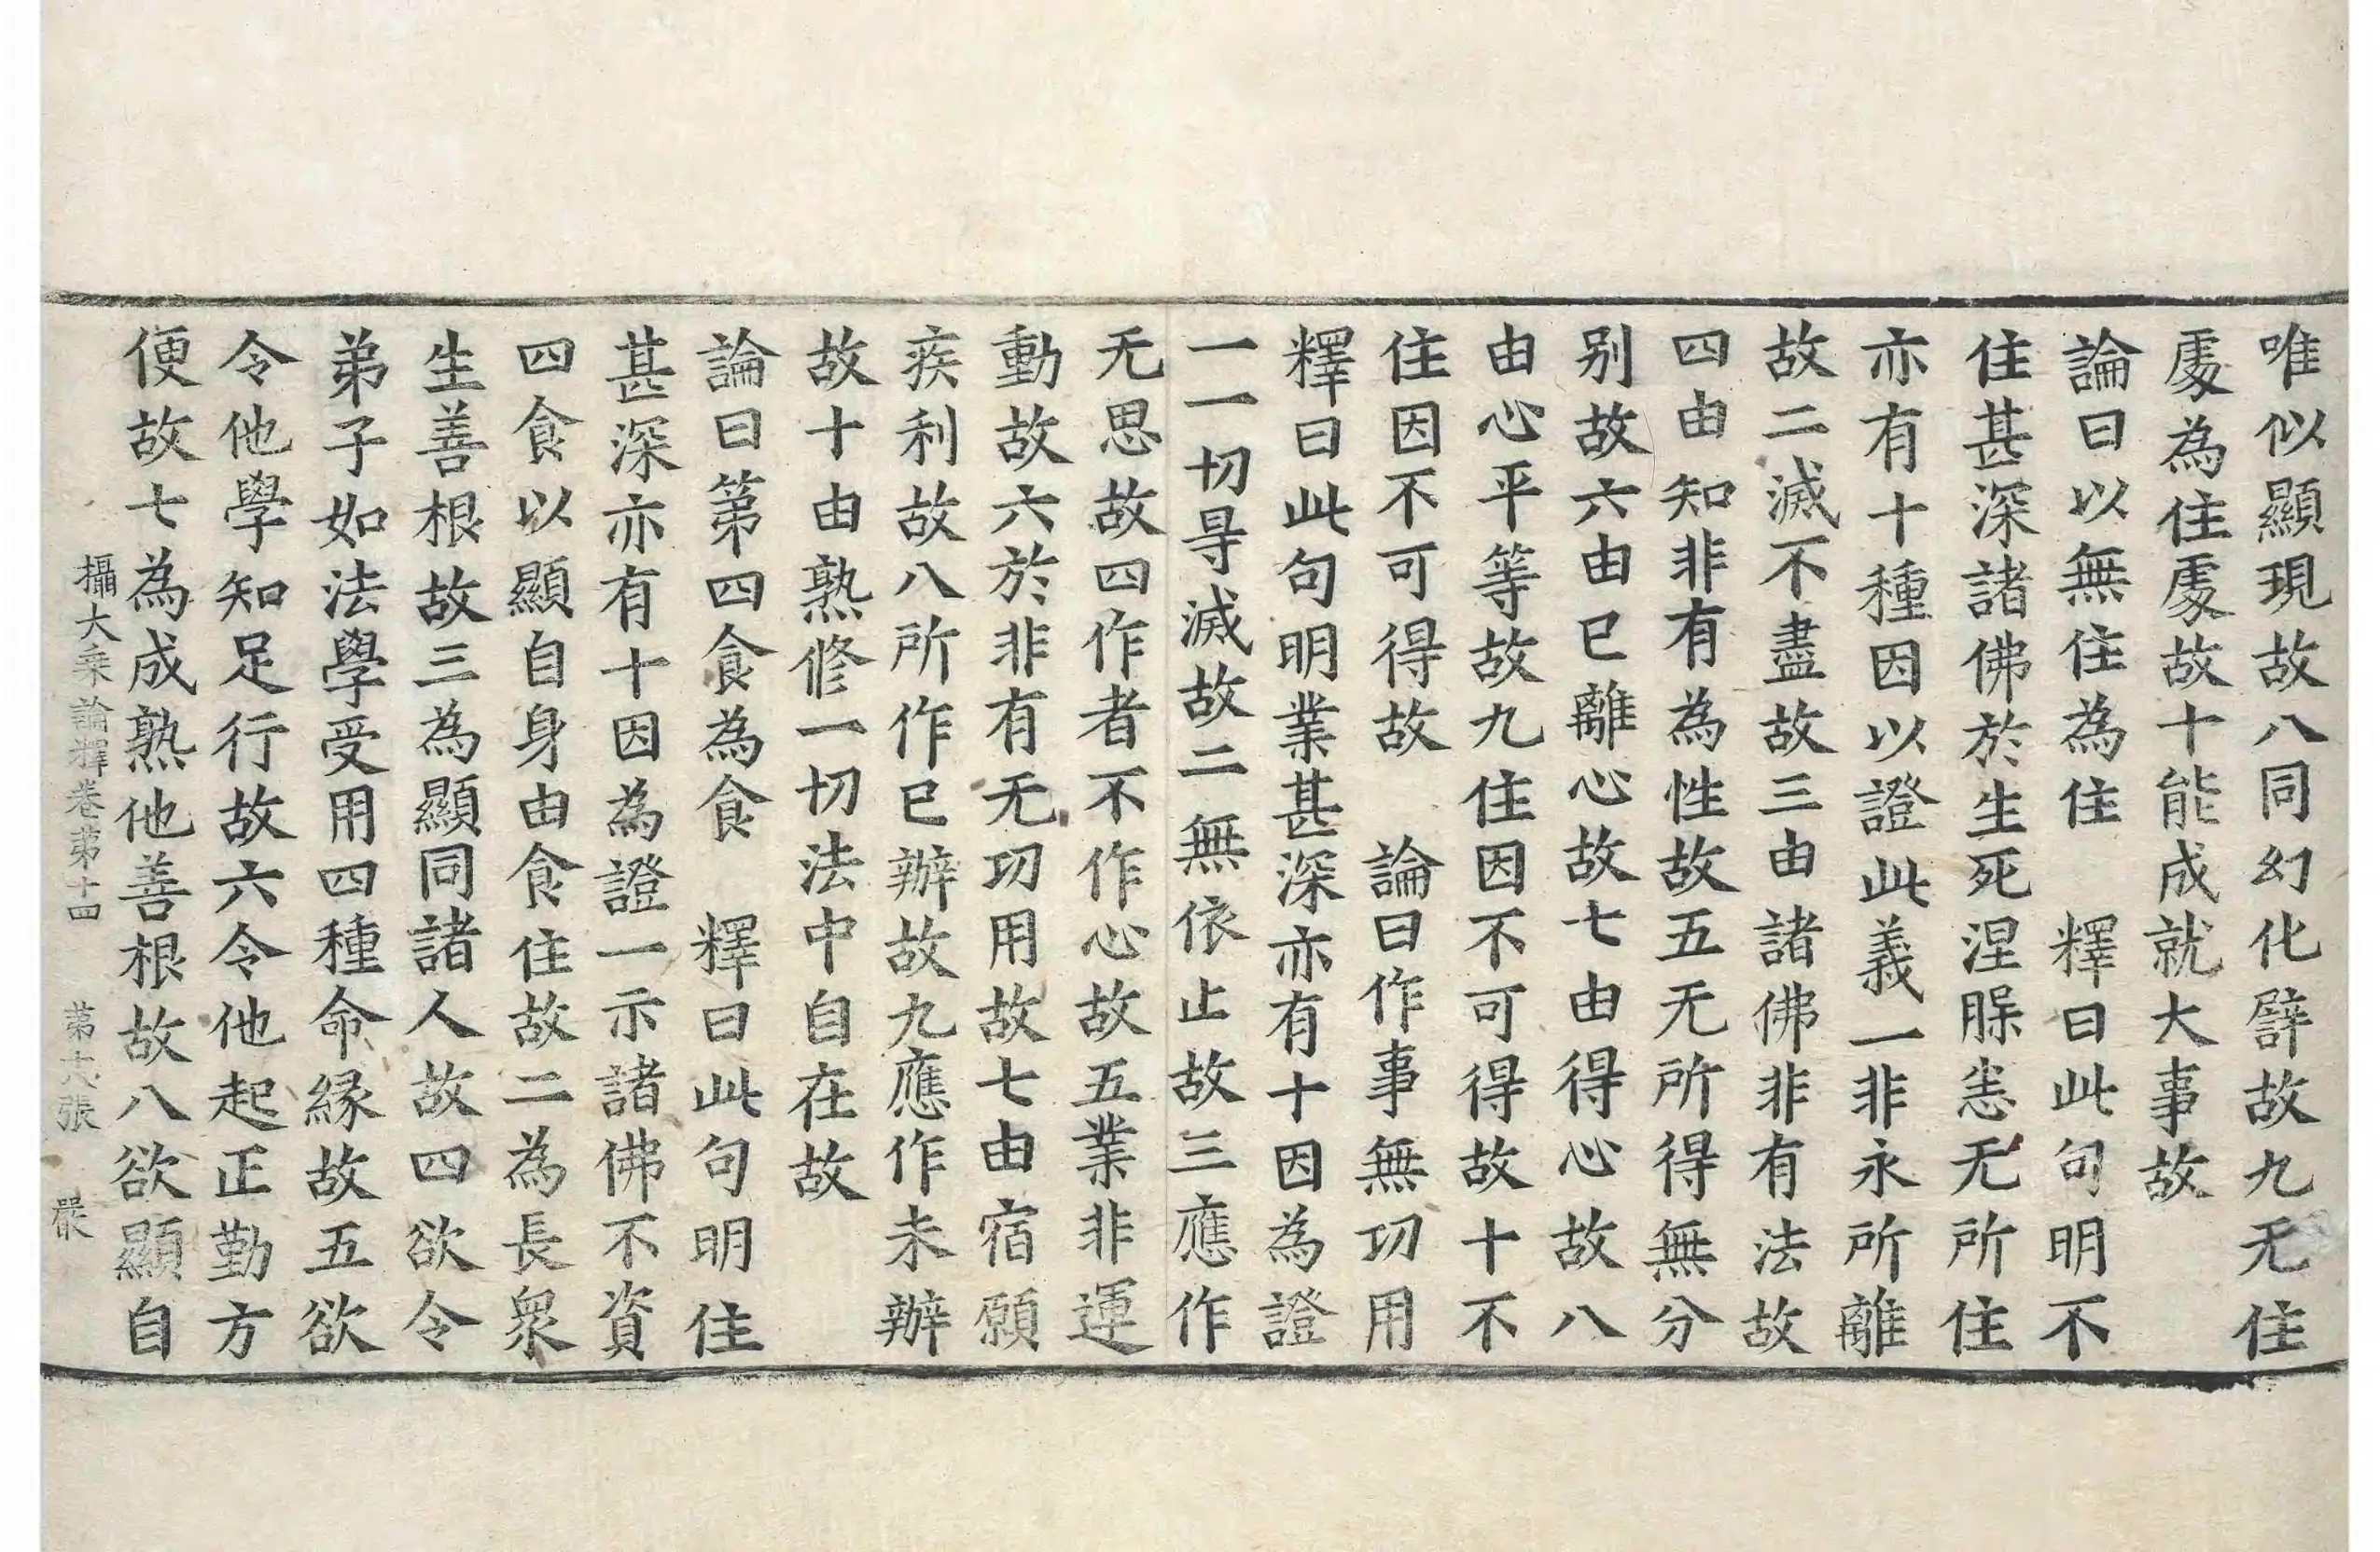 唯似顯現故八同幻化譬故九无住
處為住處故十能成就大事故
論曰以無住為住　釋曰此句明不
住甚深諸佛於生死涅槃恙无所住
亦有十種因以證此義一非永所離
故二滅不盡故三由諸佛非有法故
四由知非有為性故五无所得無分
别故六由已離心故七由得心故八
由心平等故九住因不可得故十不
住因不可得故　論曰作事無功用
釋曰此句明業甚深亦有十因為證
一一切㝵滅故二無依止故三應作
无思故四作者不作心故五業非運
動故六於非有无功用故七由宿願
疾利故八所作已辦故九應作未辦
故十由熟修一切法中自在故
論曰第四食為食　釋曰此句明住
甚深亦有十因為證一示諸佛不資
四食以顯自身由食住故二為長衆
生善根故三為顯同諸人故四欲令
弟子如法學受用四種命縁故五欲
令他學知足行故六令他起正勤方
便故七為成熟他善根故八欲顯自
攝大乘論釋卷第十四　第十六張　嚴